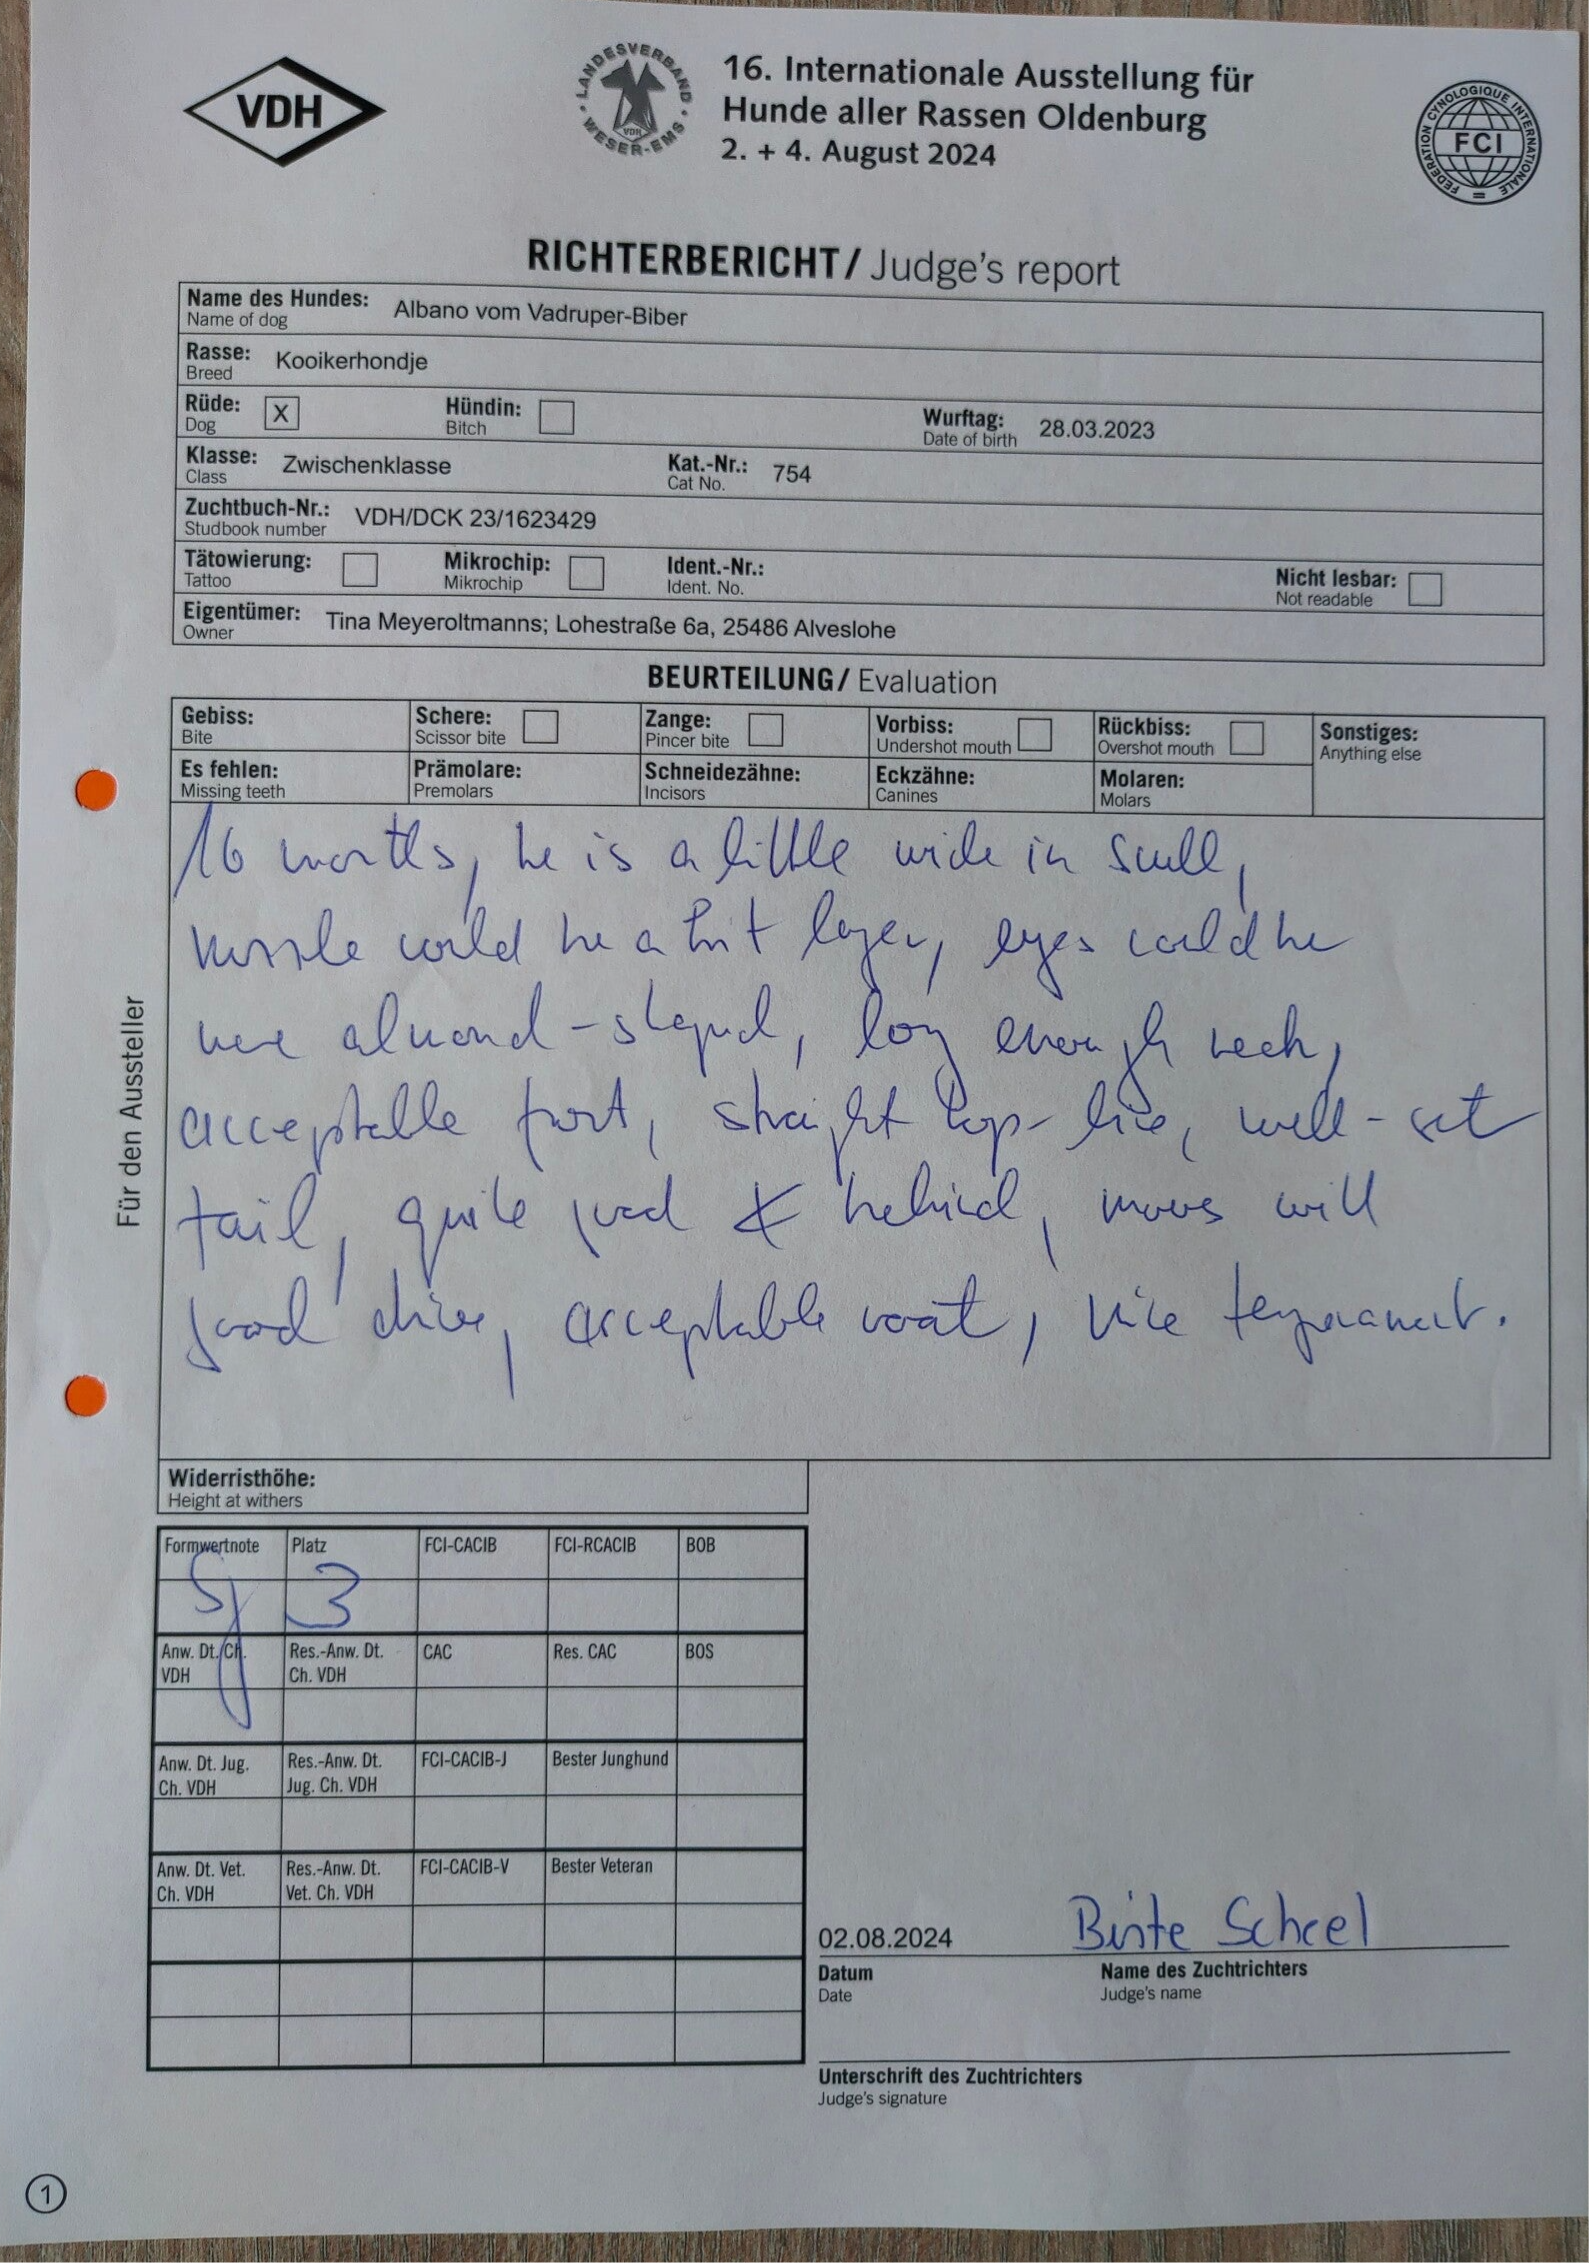 VDH
LANDESVERBAND WESER-EMS
VDH
16. Internationale Ausstellung für
Hunde aller Rassen Oldenburg
2. + 4. August 2024
FEDERATION CYNOLOGIQUE INTERNATIONALE
FCI
RICHTERBERICHT/ Judge's report
Name des Hundes: Albano vom Vadruper-Biber
Name of dog
Rasse: Kooikerhondje
Breed
Rüde: X Hündin: Wurftag: 28.03.2023
Dog Bitch Date of birth
Klasse: Zwischenklasse Kat.-Nr.: 754
Class Cat No.
Zuchtbuch-Nr.: VDH/DCK 23/1623429
Studbook number
Tätowierung: Mikrochip: Ident.-Nr.: Nicht lesbar:
Tattoo Mikrochip Ident. No. Not readable
Eigentümer: Tina Meyeroltmanns; Lohestraße 6a, 25486 Alveslohe
Owner
BEURTEILUNG/ Evaluation
Gebiss: Schere: Zange: Vorbiss: Rückbiss: Sonstiges:
Bite Scissor bite Pincer bite Undershot mouth Overshot mouth Anything else
Es fehlen: Prämolare: Schneidezähne: Eckzähne: Molaren:
Missing teeth Premolars Incisors Canines Molars
16 months, he is a little wide in scull,
could be a longer, eyes could be
more almond-shaped, long enough neck,
acceptable front, straight top-line, well-set
tail, quite good behind, moves with
good drive, acceptable coat, nice temperament.
Für den Aussteller
Widerristhöhe:
Height at withers
Formwertnote Platz FCI-CACIB FCI-RCACIB BOB
Sg 3
Anw. Dt. Ch. Res.-Anw. Dt. CAC Res. CAC BOS
VDH Ch. VDH
Anw. Dt. Jug. Res.-Anw. Dt. FCI-CACIB-J Bester Junghund
Ch. VDH Jug. Ch. VDH
Anw. Dt. Vet. Res.-Anw. Dt. FCI-CACIB-V Bester Veteran
Ch. VDH Vet. Ch. VDH
02.08.2024 Birte Scheel
Datum Name des Zuchtrichters
Date Judge's name
Unterschrift des Zuchtrichters
Judge's signature
1